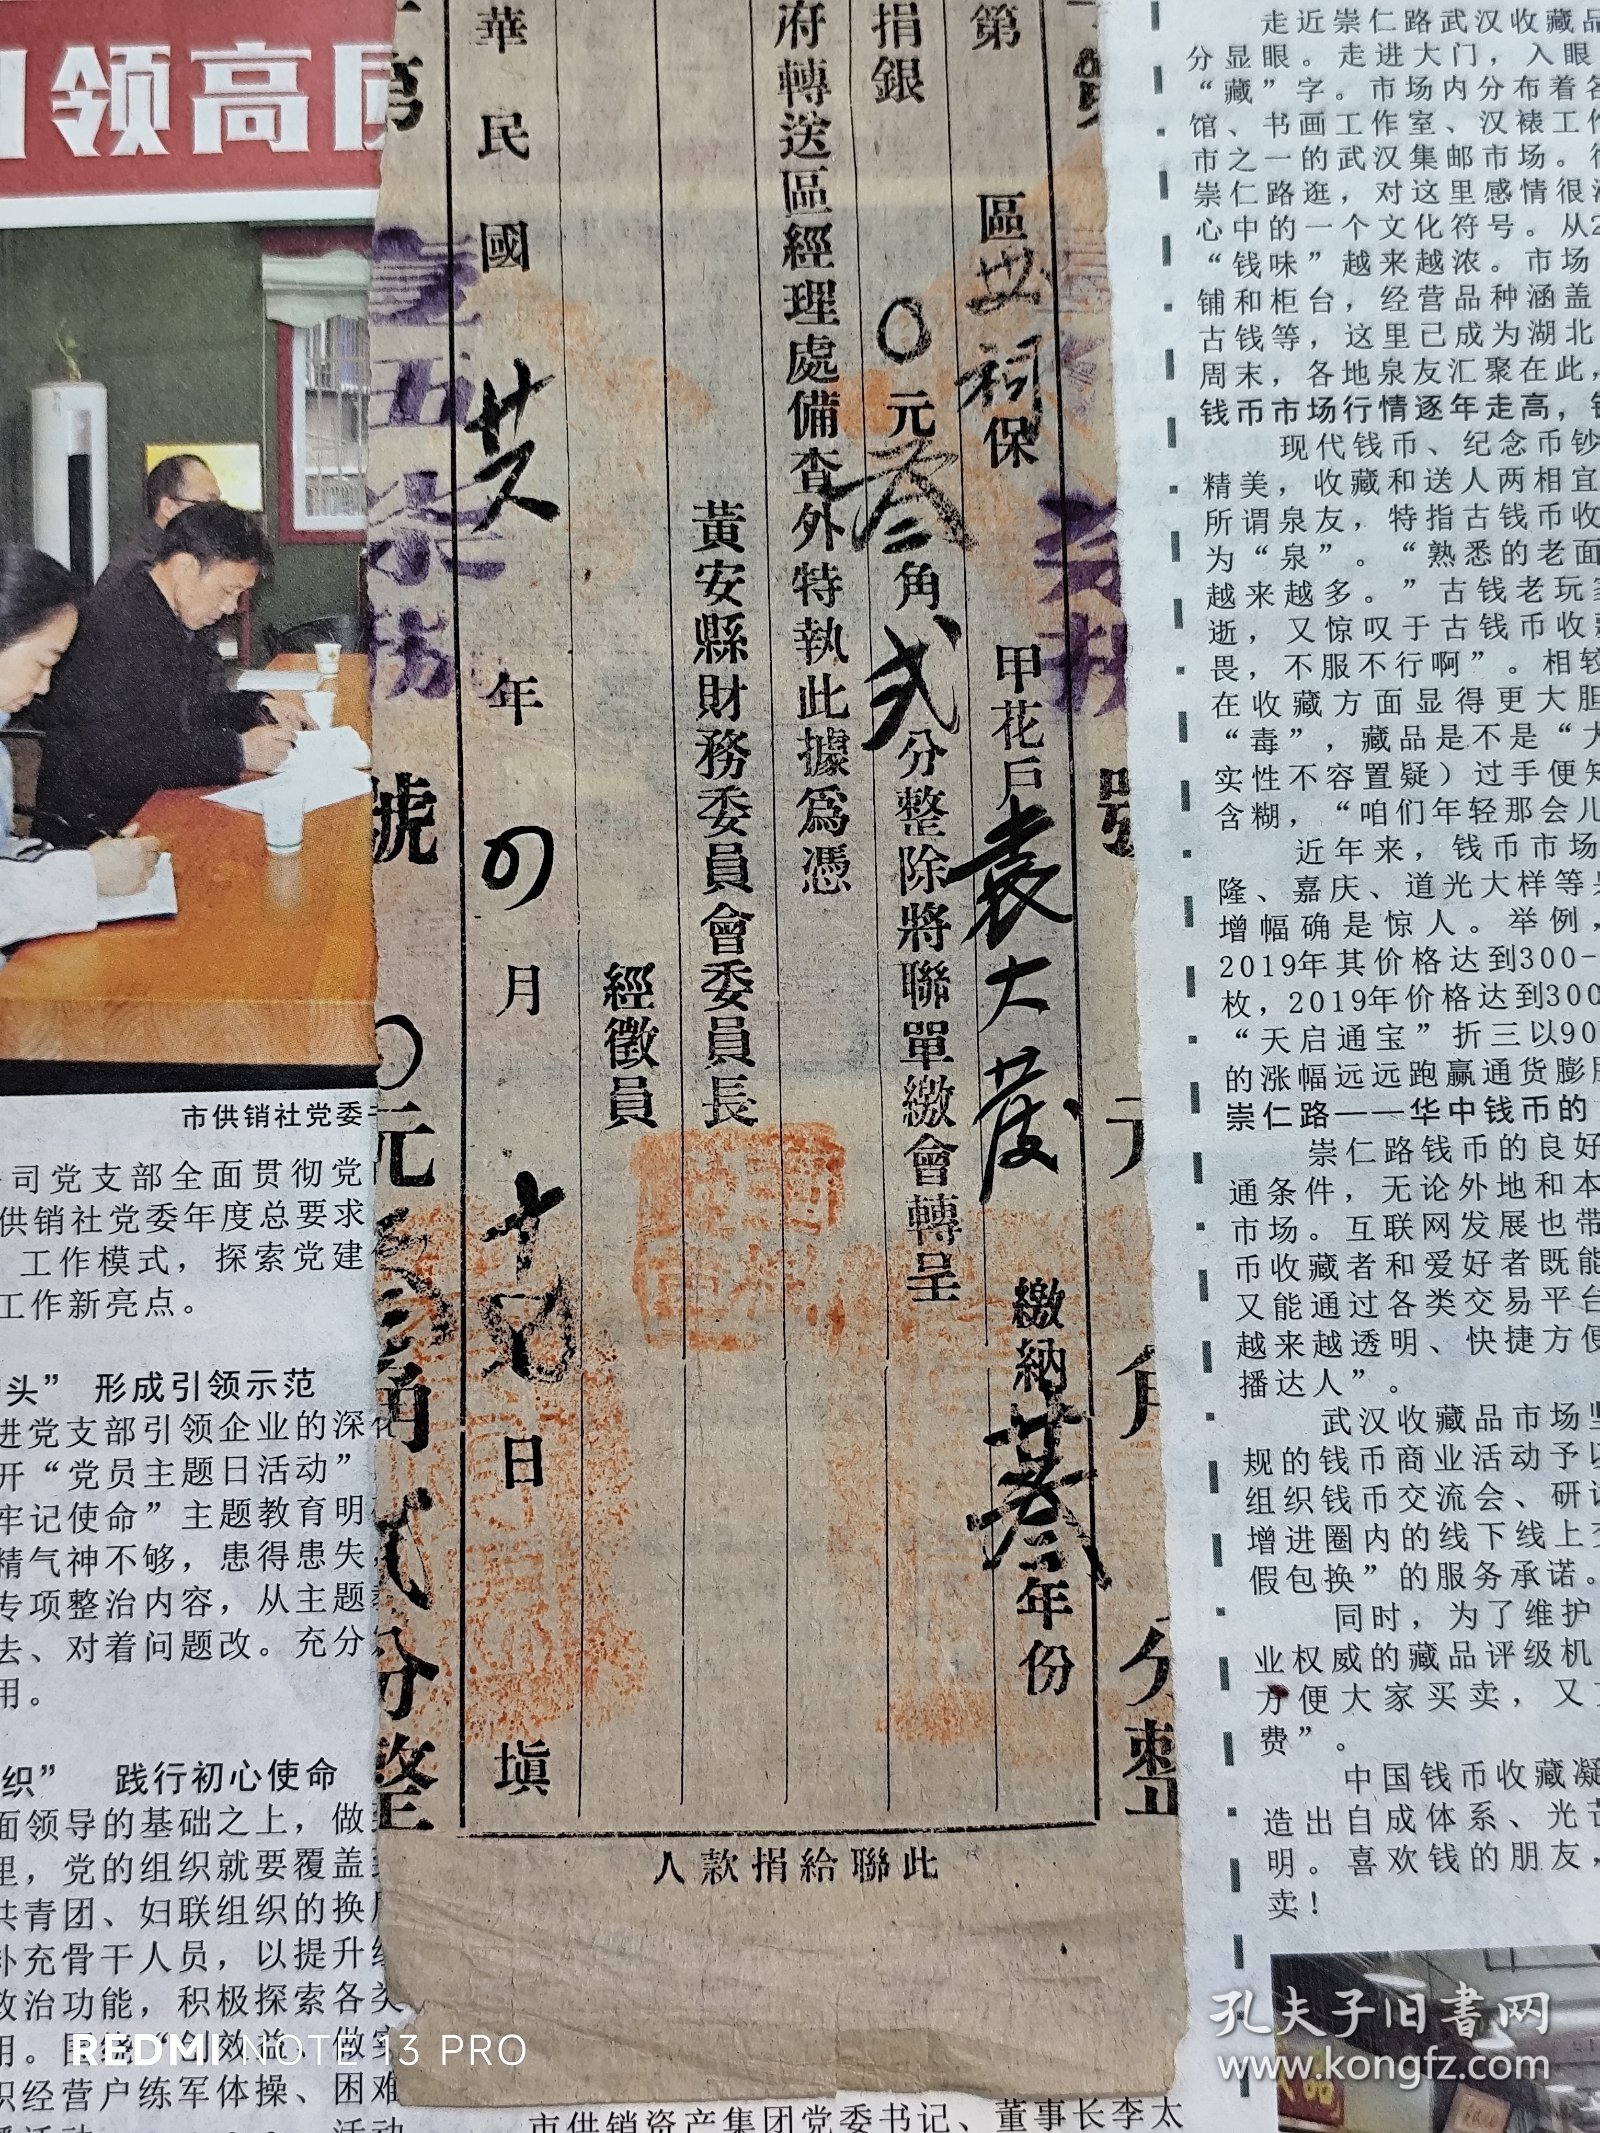 第 區 廿 祠 保 甲花戶 袁大茂 繳納 年份
捐銀 〇元叁角弍分整除將聯單繳會轉呈
府轉送區經理處備查外特執此據爲憑
黃安縣財務委員會委員長
經徵員
華民國 年 四月 十 日 填
號 元 角 分整
第 號 〇元叁角弍分整
此聯給捐款人
领高
市供销社党委
司党支部全面贯彻党
供销社党委年度总要求
工作模式，探索党建
工作新亮点。
头” 形成引领示范
进党支部引领企业的深
开“党员主题日活动”
牢记使命”主题教育明
精气神不够，患得患失
专项整治内容，从主题
去、对着问题改。充分
用。
织” 践行初心使命
面领导的基础之上，做
里，党的组织就要覆盖
共青团、妇联组织的换
补充骨干人员，以提升
政治功能，积极探索各类
用。围绕“创效益、做
织经营户练军体操、困难
市供销资产集团党委书记、董事长李太
走近崇仁路武汉收藏品
分显眼。走进大门，入眼
“藏”字。市场内分布着各
馆、书画工作室、汉裱工作
市之一的武汉集邮市场。
崇仁路逛，对这里感情很
心中的一个文化符号。从2
“钱味”越来越浓。市场
铺和柜台，经营品种涵盖
古钱等，这里已成为湖北
周末，各地泉友汇聚在此，
钱币市场行情逐年走高，
现代钱币、纪念币钞
精美，收藏和送人两相宜
所谓泉友，特指古钱币收
为“泉”。“熟悉的老面
越来越多。”古钱老玩家
逝，又惊叹于古钱币收
畏，不服不行啊”。相较
在收藏方面显得更大胆
“毒”，藏品是不是“大
实性不容置疑）过手便知
含糊，“咱们年轻那会儿
近年来，钱币市场
隆、嘉庆、道光大样等
增幅确是惊人。举例，
2019年其价格达到300-
枚，2019年价格达到300
“天启通宝”折三以90
的涨幅远远跑赢通货膨胀
崇仁路——华中钱币的
崇仁路钱币的良好
通条件，无论外地和本
市场。互联网发展也带
币收藏者和爱好者既能
又能通过各类交易平台
越来越透明、快捷方便
播达人”。
武汉收藏品市场
规的钱币商业活动予以
组织钱币交流会、研讨
增进圈内的线下线上
假包换”的服务承诺。
同时，为了维护
业权威的藏品评级机
方便大家买卖，又
费”。
中国钱币收藏凝
造出自成体系、光芒
明。喜欢钱的朋友，
卖！
REDMI NOTE 13 PRO
孔夫子旧书网
www.kongfz.com